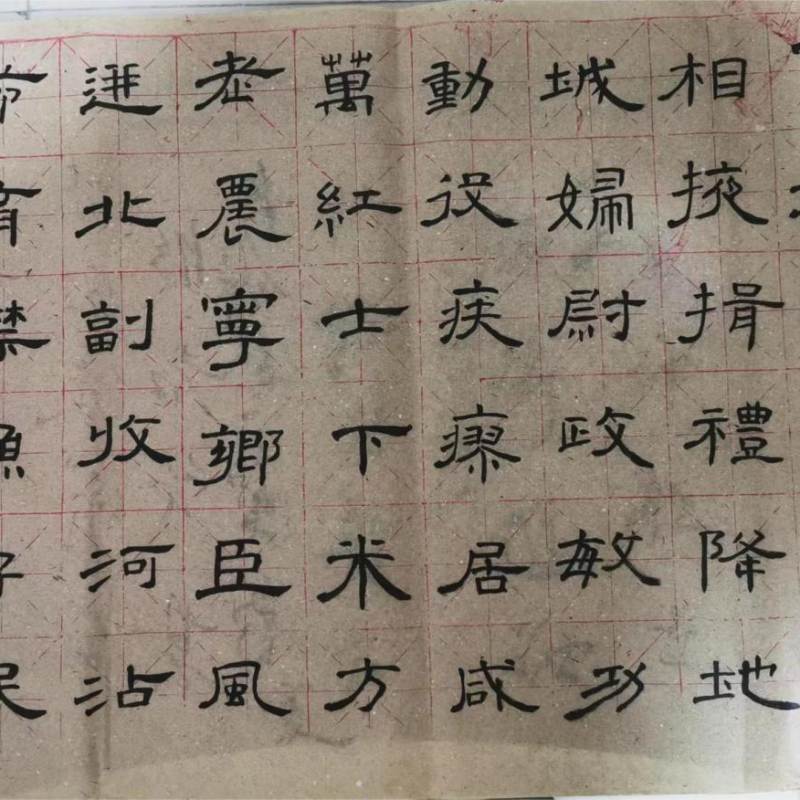 相掖揖禮降地
城婦尉政敏功
動役疾居咸
萬紅士下米方
老農寧鄉臣風
北副收河沾